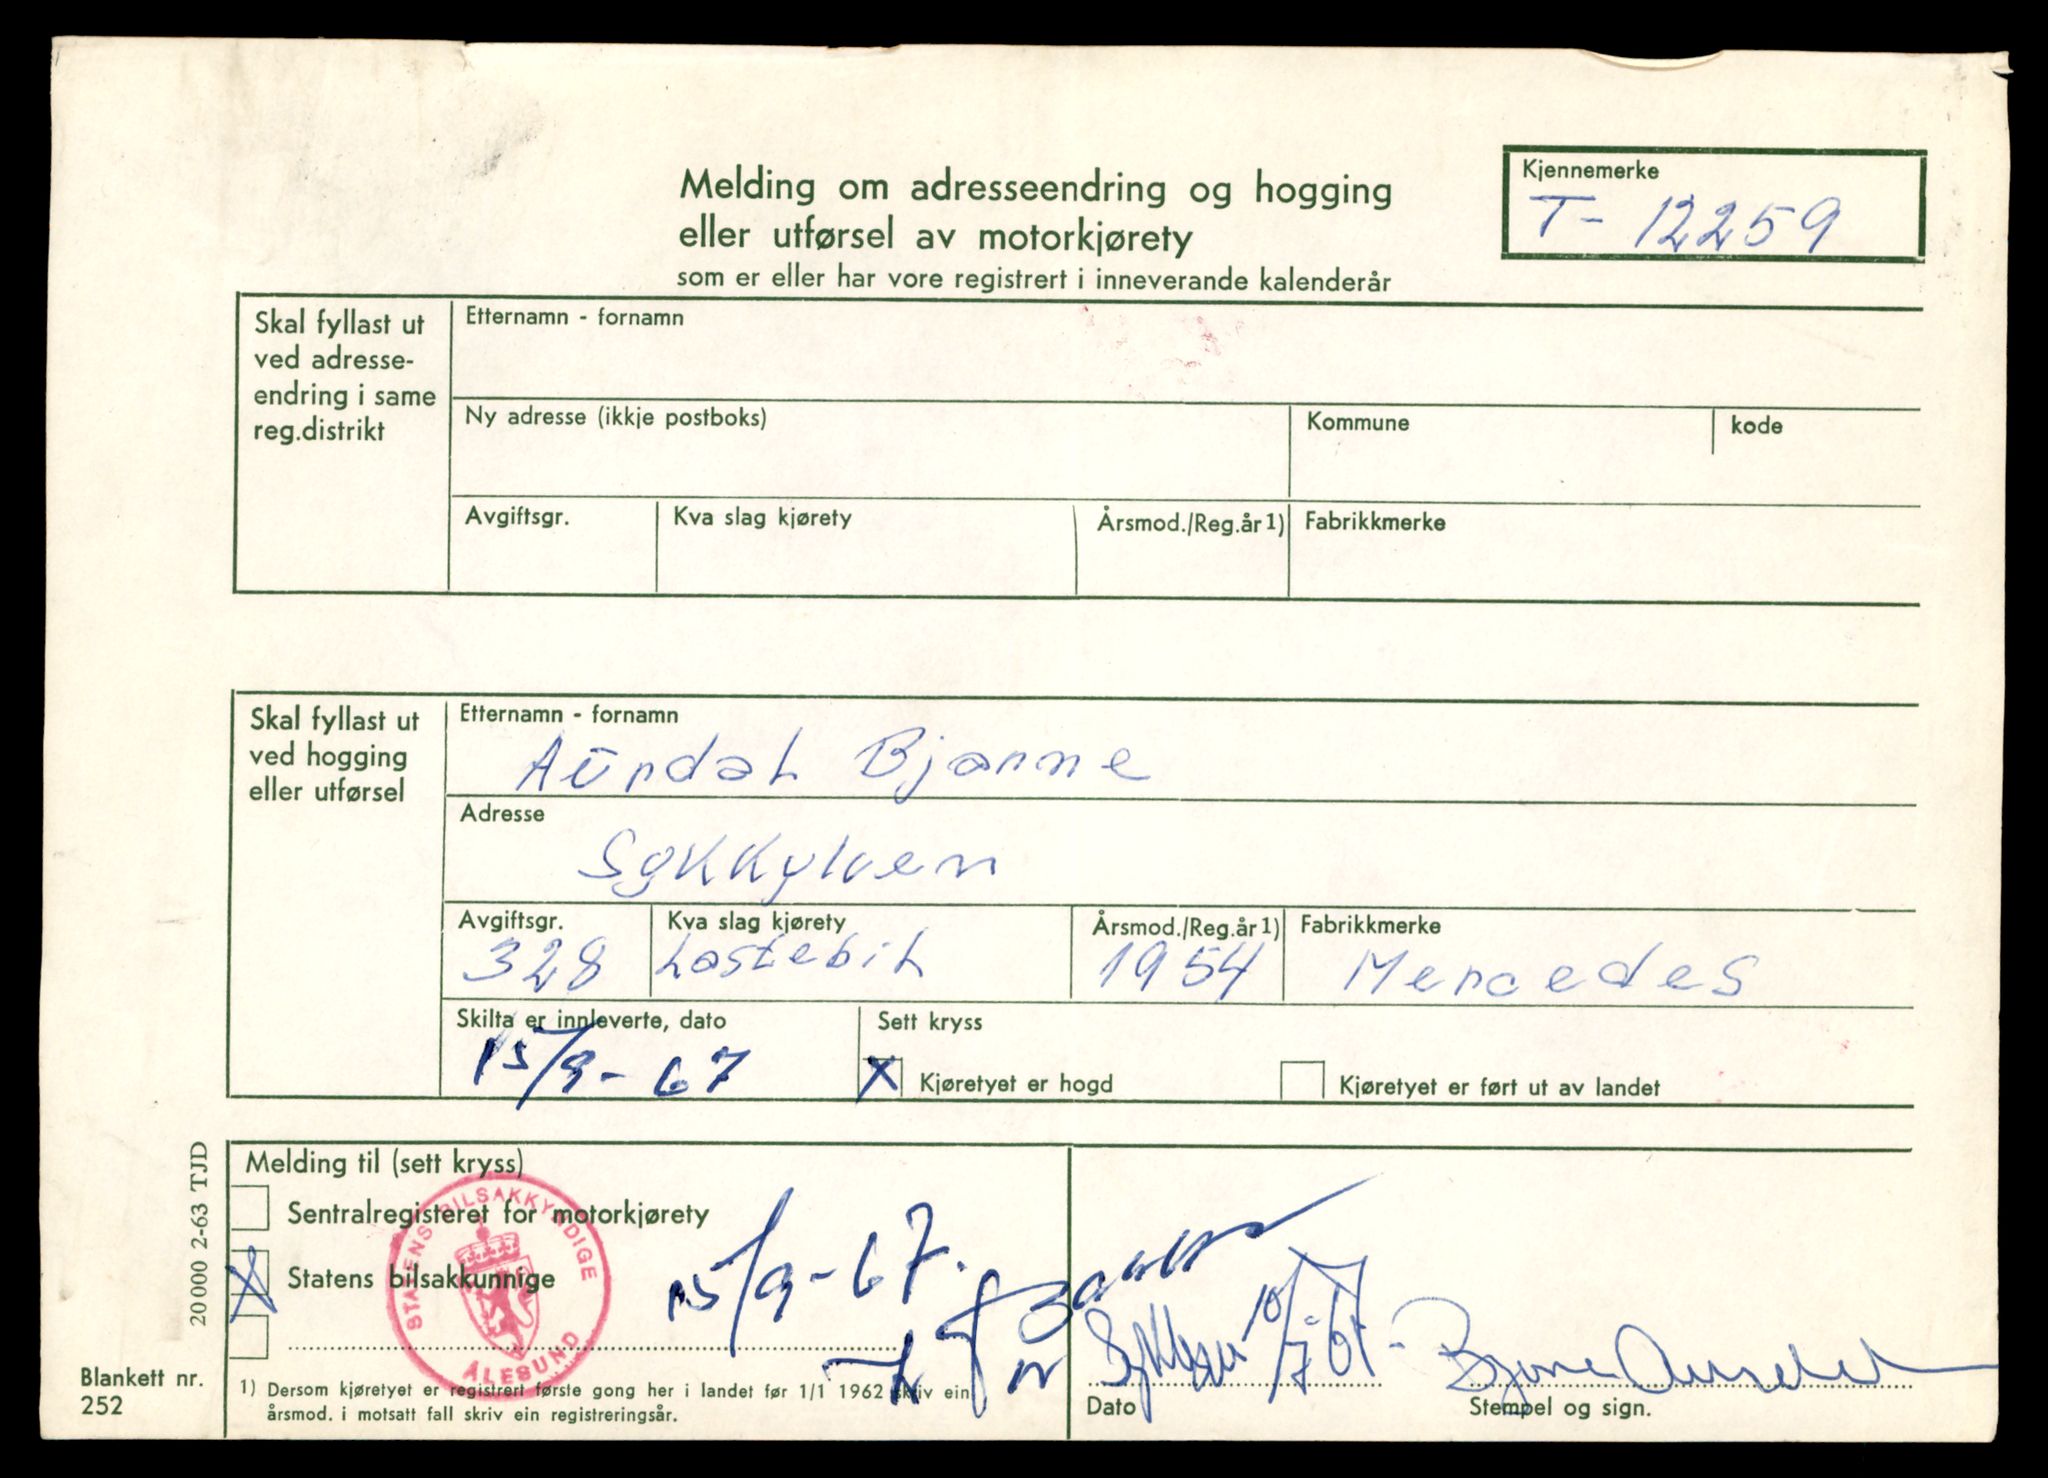 Melding om adresseendring og hogging
eller utførsel av motorkjørety
som er eller har vore registrert i inneverande kalenderår
Kjennemerke
T- 12259
Skal fyllast ut
ved adresse-
endring i same
reg.distrikt
Etternamn - fornamn
Ny adresse (ikkje postboks)
Kommune
kode
Avgiftsgr.
Kva slag kjørety
Årsmod./Reg.år 1)
Fabrikkmerke
Skal fyllast ut
ved hogging
eller utførsel
Etternamn - fornamn
Aurdal Bjarne
Adresse
Sykkylven
Avgiftsgr.
328
Kva slag kjørety
Lastebil
Årsmod./Reg.år 1)
1954
Fabrikkmerke
Mercedes
Skilta er innleverte, dato
15/9-67
Sett kryss
X Kjøretyet er hogd
Kjøretyet er ført ut av landet
Melding til (sett kryss)
Sentralregisteret for motorkjørety
X Statens bilsakkunnige
STATENS BILSAKKYNDIGE
ÅLESUND
15/9-67.
Dato
Bjarne Aurdal
Stempel og sign.
1) Dersom kjøretyet er registrert første gong her i landet før 1/1 1962 skriv ein
årsmod. i motsatt fall skriv ein registreringsår.
20000 2-63 TJD
Blankett nr.
252